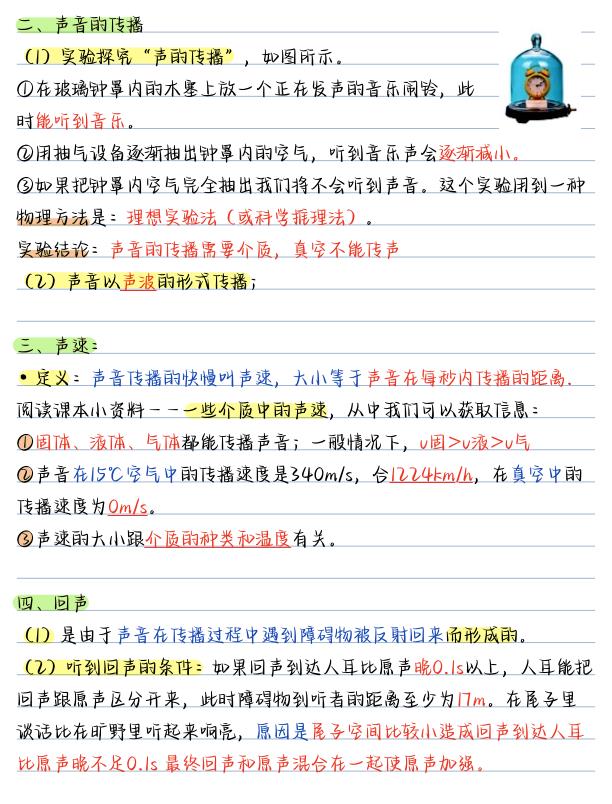 二、声音的传播
（1）实验探究“声的传播”，如图所示。
①在玻璃钟罩内的木塞上放一个正在发声的音乐闹铃，此
时能听到音乐。
②用抽气设备逐渐抽出钟罩内的空气，听到音乐声会逐渐减小。
③如果把钟罩内空气完全抽出我们将不会听到声音。这个实验用到一种
物理方法是：理想实验法（或科学推理法）。
实验结论：声音的传播需要介质，真空不能传声
（2）声音以声波的形式传播；
三、声速：
• 定义：声音传播的快慢叫声速，大小等于声音在每秒内传播的距离．
阅读课本小资料－－一些介质中的声速，从中我们可以获取信息：
①固体、液体、气体都能传播声音；一般情况下，v固>v液>v气
②声音在15℃空气中的传播速度是340m/s，合1224km/h，在真空中的
传播速度为0m/s。
③声速的大小跟介质的种类和温度有关。
四、回声
（1）是由于声音在传播过程中遇到障碍物被反射回来而形成的。
（2）听到回声的条件：如果回声到达人耳比原声晚0.1s以上，人耳能把
回声跟原声区分开来，此时障碍物到听者的距离至少为17m。在屋子里
谈话比在旷野里听起来响亮，原因是屋子空间比较小造成回声到达人耳
比原声晚不足0.1s 最终回声和原声混合在一起使原声加强。